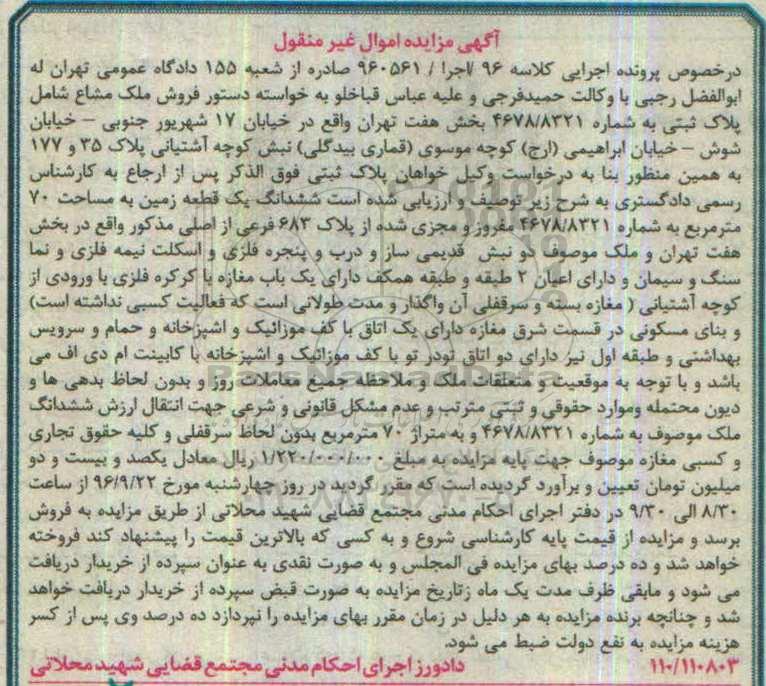 آگهی مزایده اموال غیر منقول
درخصوص پرونده اجرایی کلاسه ۹۶ /اجرا / ۹۶۰۵۶۱ صادره از شعبه ۱۵۵ دادگاه عمومی تهران له
ابوالفضل رجبی با وکالت حمیدفرجی و علیه عباس قباخلو به خواسته دستور فروش ملک مشاع شامل
پلاک ثبتی به شماره ۴۶۷۸/۸۳۲۱ بخش هفت تهران واقع در خیابان ۱۷ شهریور جنوبی – خیابان
شوش – خیابان ابراهیمی (ارج) کوچه موسوی (قماری بیدگلی) نبش کوچه آشتیانی پلاک ۳۵ و ۱۷۷
به همین منظور بنا به درخواست وکیل خواهان پلاک ثبتی فوق الذکر پس از ارجاع به کارشناس
رسمی دادگستری به شرح زیر توصیف و ارزیابی شده است ششدانگ یک قطعه زمین به مساحت ۷۰
مترمربع به شماره ۴۶۷۸/۸۳۲۱ مفروز و مجزی شده از پلاک ۶۸۳ فرعی از اصلی مذکور واقع در بخش
هفت تهران و ملک موصوف دو نبش قدیمی ساز و درب و پنجره فلزی و اسکلت نیمه فلزی و نما
سنگ و سیمان و دارای اعیان ۲ طبقه و طبقه همکف دارای یک باب مغازه با کرکره فلزی با ورودی از
کوچه آشتیانی ( مغازه بسته و سرقفلی آن واگذار و مدت طولانی است که فعالیت کسبی نداشته است)
و بنای مسکونی در قسمت شرق مغازه دارای یک اتاق با کف موزائیک و اشپزخانه و حمام و سرویس
بهداشتی و طبقه اول نیز دارای دو اتاق تودر تو با کف موزائیک و اشپزخانه با کابینت ام دی اف می
باشد و با توجه به موقعیت و متعلقات ملک و ملاحظه جمیع معاملات روز و بدون لحاظ بدهی ها و
دیون محتمله وموارد حقوقی و ثبتی مترتب و عدم مشکل قانونی و شرعی جهت انتقال ارزش ششدانگ
ملک موصوف به شماره ۴۶۷۸/۸۳۲۱ و به متراژ ۷۰ مترمربع بدون لحاظ سرقفلی و کلیه حقوق تجاری
و کسبی مغازه موصوف جهت پایه مزایده به مبلغ ۱/۲۲۰/۰۰۰/۰۰۰ ریال معادل یکصد و بیست و دو
میلیون تومان تعیین و برآورد گردیده است که مقرر گردید در روز چهارشنبه مورخ ۹۶/۹/۲۲ از ساعت
۸/۳۰ الی ۹/۳۰ در دفتر اجرای احکام مدنی مجتمع قضایی شهید محلاتی از طریق مزایده به فروش
برسد و مزایده از قیمت پایه کارشناسی شروع و به کسی که بالاترین قیمت را پیشنهاد کند فروخته
خواهد شد و ده درصد بهای مزایده فی المجلس و به صورت نقدی به عنوان سپرده از خریدار دریافت
می شود و مابقی ظرف مدت یک ماه زتاریخ مزایده به صورت قبض سپرده از خریدار دریافت خواهد
شد و چنانچه برنده مزایده به هر دلیل در زمان مقرر بهای مزایده را نپردازد ده درصد وی پس از کسر
هزینه مزایده به نفع دولت ضبط می شود.
۱۱۰/۱۱۰۸۰۳ دادورز اجرای احکام مدنی مجتمع قضایی شهید محلاتی
ParsNamadData